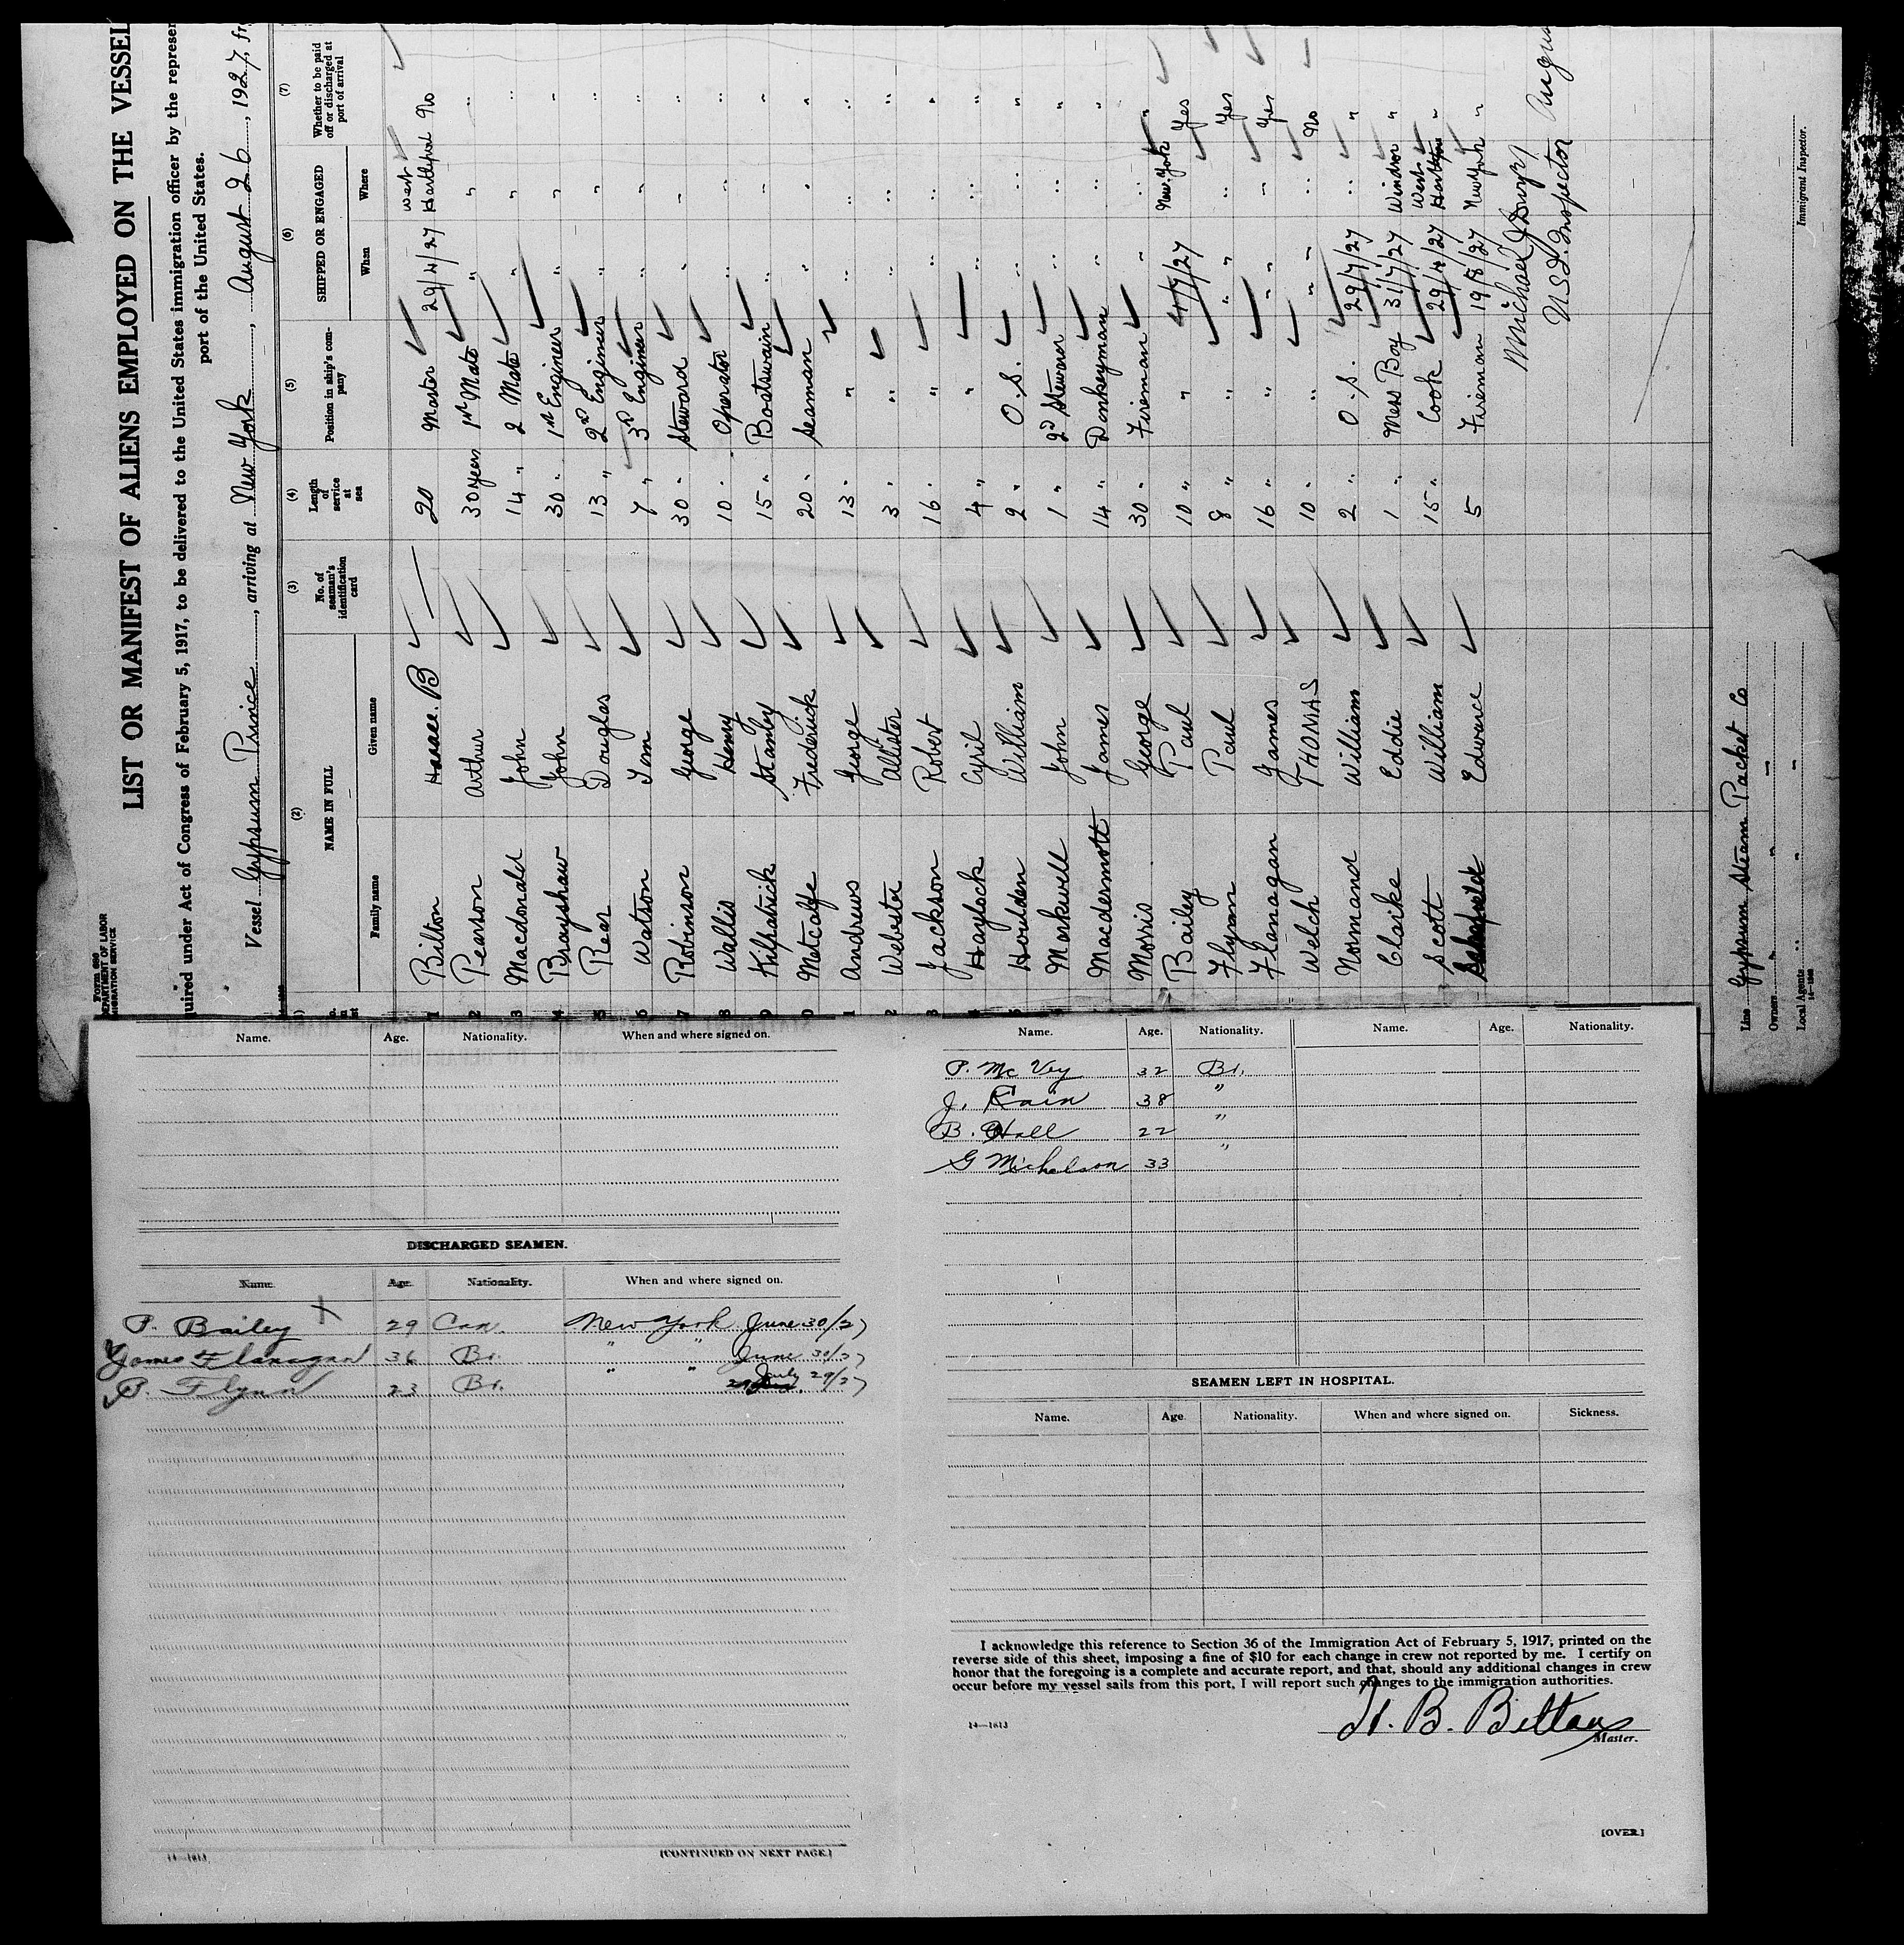 Form 689
DEPARTMENT OF LABOR
IMMIGRATION SERVICE
LIST OR MANIFEST OF ALIENS EMPLOYED ON THE VESSEL
quired under Act of Congress of February 5, 1917, to be delivered to the United States immigration officer by the represen
port of the United States.
Vessel Gypsum Prince, arriving at New York, August 26, 1927, fr
(2) (3) (4) (5) (6) (7)
NAME IN FULL No. of seaman's identification card Length of service at sea Position in ship's company SHIPPED OR ENGAGED Whether to be paid off or discharged at port of arrival
Family name Given name When Where
1 Bilton B 20 Master 29/4/27 West Hartlepool No
2 Pearson Arthur 30 years 1st Mate " " "
3 Macdonald John 14 " 2 Mate " " "
4 Brayshaw John 30 " 1st Engineer " " "
5 Rear Douglas 13 " 2nd Engineer " " "
6 Watson Tom 7 " 3rd Engineer " " "
7 Robinson George 30 " Steward " " "
8 Wallis Henry 10 " Operator " " "
9 Kilpatrick Stanley 15 " Boatswain " " "
0 Metcalfe Frederick 20 " Seaman " " "
1 Andrews George 13 " " " " "
2 Webster Allister 3 " " " " "
3 Jackson Robert 16 " " " " "
4 Haylock Cyril 4 " " " " "
5 Houlden William 2 " O.S. " " "
Markwell John 1 " 2d Steward " " "
Macdermott James 14 " Donkeyman " " "
Morris George 30 " Fireman " " "
Bailey Paul 10 " " 4/7/27 New York Yes
Flynn Paul 8 " " " " Yes
Flanagan James 16 " " " " Yes
Welch THOMAS 10 " " " " No
Normand William 2 " O.S. 29/7/27 " "
Clarke Eddie 1 " Mess Boy 31/7/27 Windsor "
Scott William 15 " Cook 29/4/27 West Hartlepool "
Edward 5 Fireman 19/8/27 New York "
Michael J Dwyer Augus
U.S.I. Inspector
Line Gypsum Steam Packet Co
Owners " " "
Local Agents " " "
14—1240
Immigrant Inspector.
Name. Age. Nationality. When and where signed on.
DISCHARGED SEAMEN.
Name. Age. Nationality. When and where signed on.
P. Bailey X 29 Can. New York June 30/27
James Flanagan 36 Br. " " June 30/27
P. Flynn 23 Br. " " July 29/27
14—1613
[CONTINUED ON NEXT PAGE.]
Name. Age. Nationality. Name. Age. Nationality.
P. McVey 32 Br.
J. Cain 38 "
B. Hall 22 "
G Michelson 33 "
SEAMEN LEFT IN HOSPITAL.
Name. Age. Nationality. When and where signed on. Sickness.
I acknowledge this reference to Section 36 of the Immigration Act of February 5, 1917, printed on the
reverse side of this sheet, imposing a fine of $10 for each change in crew not reported by me. I certify on
honor that the foregoing is a complete and accurate report, and that, should any additional changes in crew
occur before my vessel sails from this port, I will report such changes to the immigration authorities.
14—1613
H. B. Bilton
Master.
[OVER]